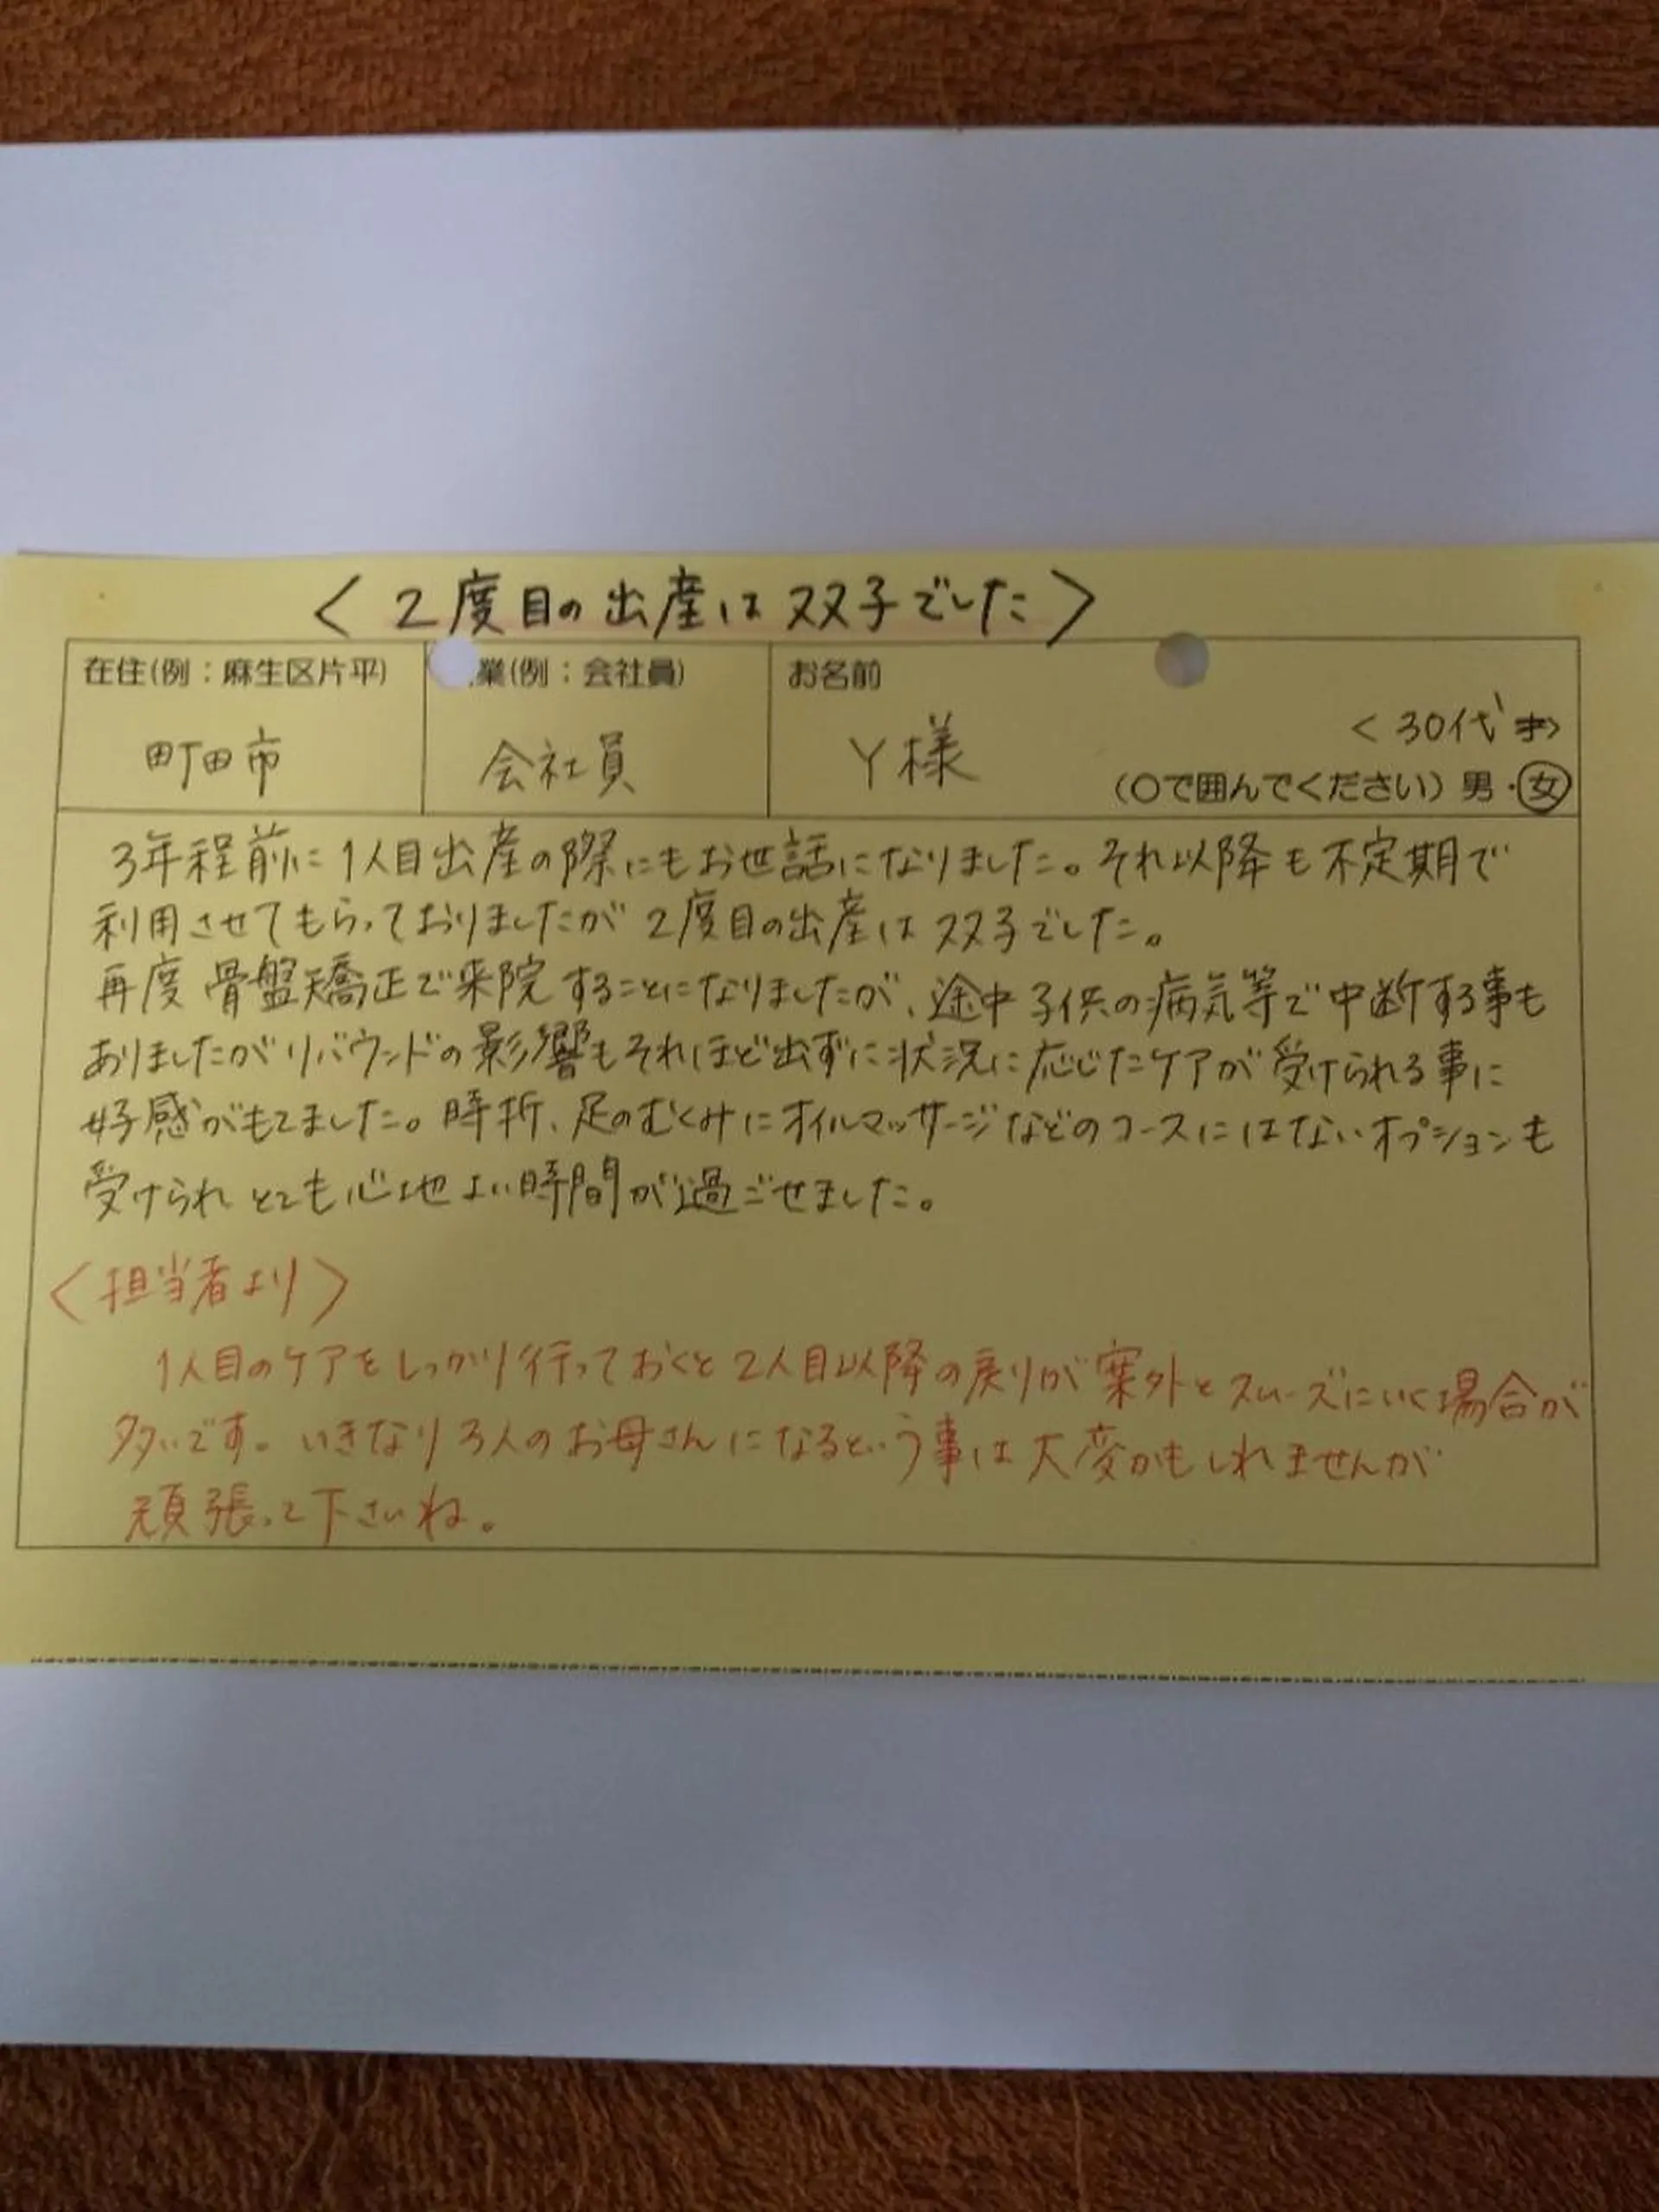 〈２度目の出産は双子でした〉
在住(例：麻生区片平)
業(例：会社員)
お名前
町田市
会社員
Y様
＜30代＞
(○で囲んでください) 男・女
3年程前に1人目出産の際にもお世話になりました。それ以降も不定期で
利用させてもらっておりましたが2度目の出産は双子でした。
再度骨盤矯正で来院することになりましたが、途中子供の病気等で中断する事も
ありましたがリバウンドの影響もそれほど出ずに状況に応じたケアが受けられる事に
好感がもてました。時折、足のむくみにオイルマッサージなどのコースにはないオプションも
受けられとても心地よい時間が過ごせました。
〈担当者より〉
1人目のケアをしっかり行っておくと2人目以降の戻りが案外とスムーズにいく場合が
多いです。いきなり3人のお母さんになるという事は大変かもしれませんが
頑張って下さいね。